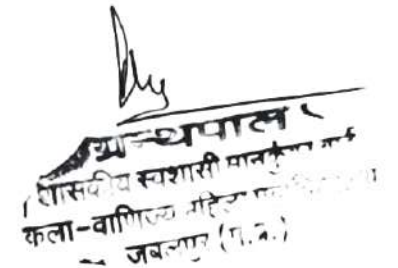 ग्रन्थपाल
शासकीय स्वशासी मानकुंवर बाई
कला-वाणिज्य महिला
जबलपुर (म.प्र.)